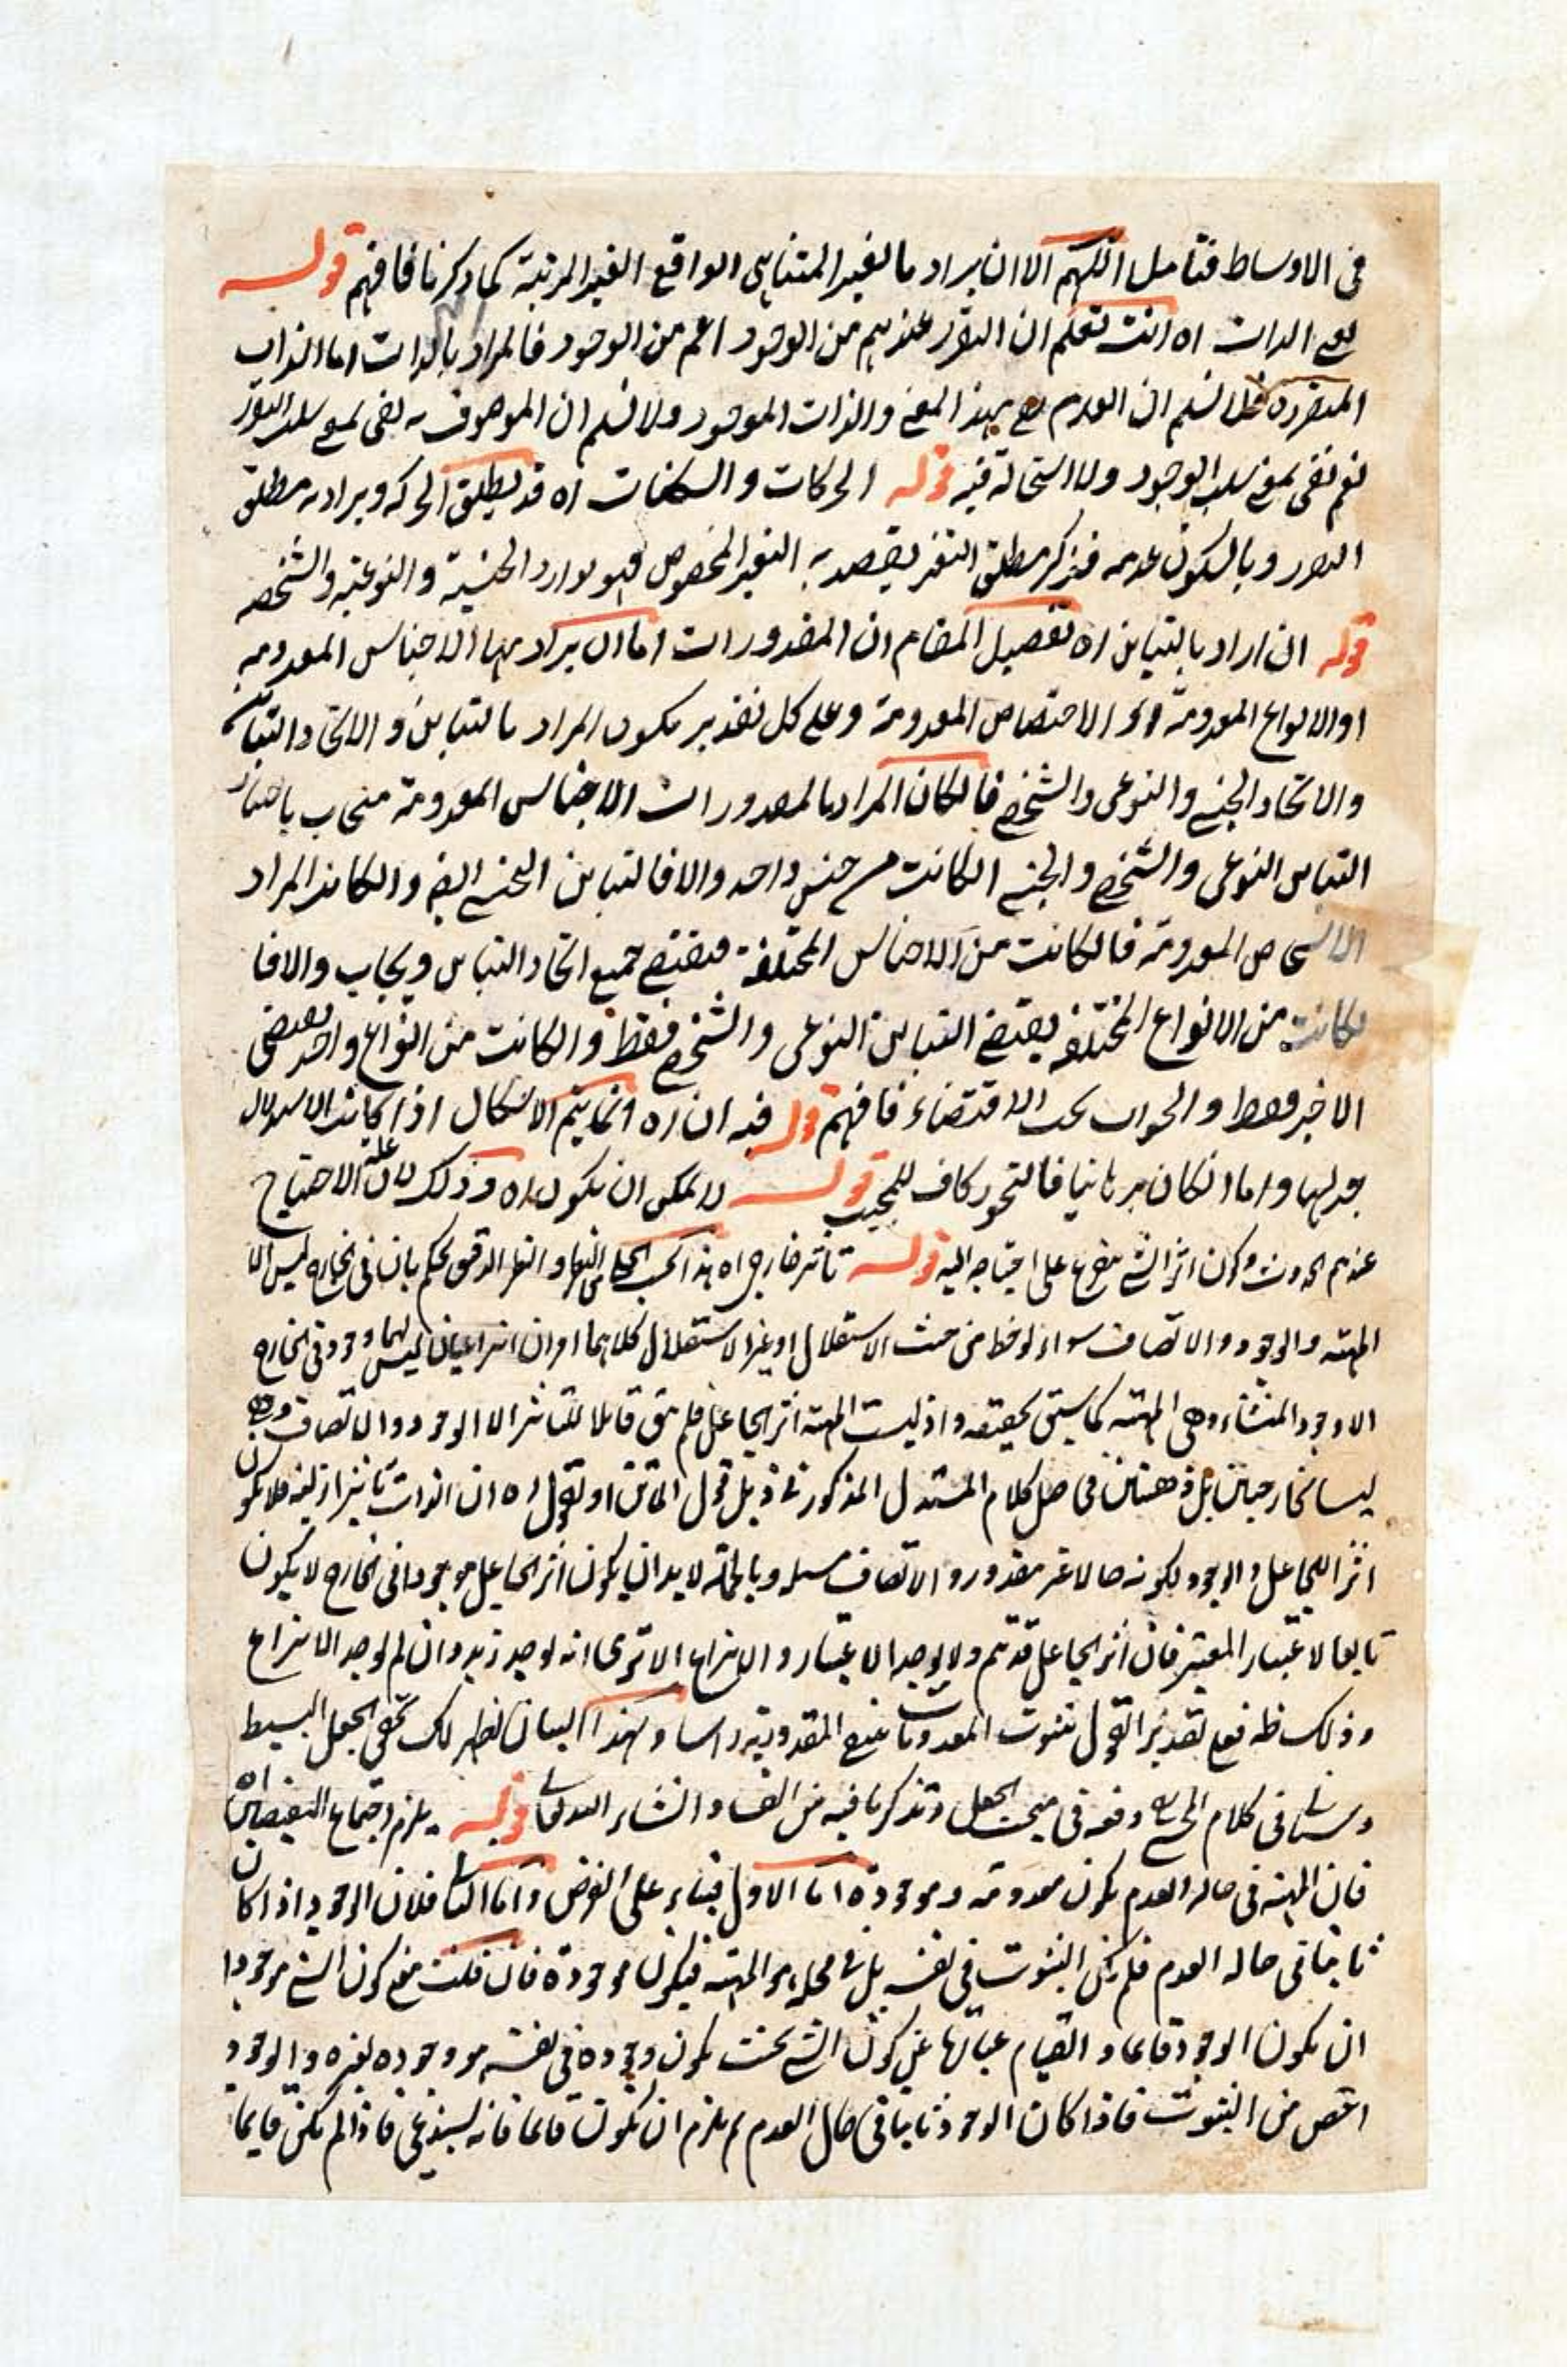 في الاوساط فتامل اللهم الا ان يراد بالغير المتناهي الواقع الغير المرتبة كما ذكرنا فافهم قوله
الذات اه انت تعلم ان التقرر عندهم من الوجود اعم من الوجود فالمراد بالذات اما الذات
المتقررة فلا نسلم ان العدم بهذا المعنى والذات الموجود ولا نسلم ان الموصوف به نفي بمعنى سلب التقرر
نعم نفي بمعنى سلب الوجود ولا استحالة فيه قوله الحركات والسكنات اه قد يطلق الحركه ويراد به مطلق
وبالسكون عدمه فذكر مطلق التغير يقصد به التغير المخصوص فهو توارد الجنسية والنوعية والشخصيه
قوله ان اراد بالتباين اه تفصيل المقام ان المقدورات اما ان يراد بها الاجناس المعدومه
او الانواع المعدومة او الاشخاص المعدومة وعلى كل تقدير يكون المراد بالتباين والاتحاد التباين
والاتحاد الجنسي والنوعي والشخصي فان كان المراد بالمقدورات الاجناس المعدومة فيجاب باختيار
التباين النوعي والشخصي والجنسي ان كانت من جنس واحد والا فالتباين الجنسي ايضا وان كان المراد
الاشخاص المعدومة فان كانت من الاجناس المختلفة فيقتضي جميع اتحاد التباين ويجاب والا فا
كانت من الانواع المختلفة يقتضي التباين النوعي والشخصي فقط وان كانت من انواع واحد يقتضي
الاخير فقط والجواب بحسب الاقتضاء فافهم قوله فيه ان اه انما يتم الاشكال اذا كانت الاستدلال
جدليا واما ان كان برهانيا فالتجوز كاف للمجيب قوله لا يمكن ان يكون اه وذلك لان علة الاحتياج
عندهم الحدوث وكون اثر الشيء متفرع على احتياجه اليه قوله تأثير خارجي اه هذا بحسب الجلي والنظر الدقيق يحكم بان في الخارج ليس الا
المهية والوجود والاتصاف سواء لوحظ من حيث الاستقلال او غير الاستقلال كلاهما امران انتزاعيان ليس لهما وجود في الخارج
الا وجود المنشاء وهي المهية كما سيتي تحقيقه واذ ليست المهية اثر الجاعل فلم يبق قابلا للتأثير الا الوجود والاتصاف وهما
ليسا خارجيين بل ذهنيين في حل كلام المستدل المذكور في ذيل قول الماتن او نقول اه ان الذات تأثير ازلية فلا يكون
اثرا للجاعل والوجود لكونه حالا غير مقدور والاتصاف وبالجملة لا بد ان يكون اثر الجاعل موجودا في الخارج لا يكون
تابعا لاعتبار المعتبر فان اثر الجاعل قد تم ولا يوجد الاعتبار والانتزاع الا ترى انه يوجد زيد وان لم يوجد الانتزاع
وذلك ظ فعلى تقدير القول بثبوت المعدومات تمنع المقدورية راسا وبهذا البيان يظهر لك تحقق الجعل البسيط
وسيأتي في كلام المحشي دفعه في مبحث الجعل وتذكر ما فيه من الفساد انشاء الله تعالى قوله يلزم اجتماع النقيضين اه
فان المهية في حال العدم يكون معدومة وموجودة اما الاول فبناء على الفرض واما الثاني فلان الوجود اذا كان
ثابتا في حاله العدم فلم يكن الثبوت في نفسه بل في محله هو المهية فيكون موجودة فان قلت معنى كون الشيء موجودا
ان يكون الوجود قايما والقيام عبارة عن كون الشيء بحيث يكون وجوده في نفسه هو وجوده لغيره والوجود
اخص من الثبوت فاذا كان الوجود ثابتا في حال العدم لم يلزم ان يكون قايما فانه يستدعي فاذا لم يكن قايما